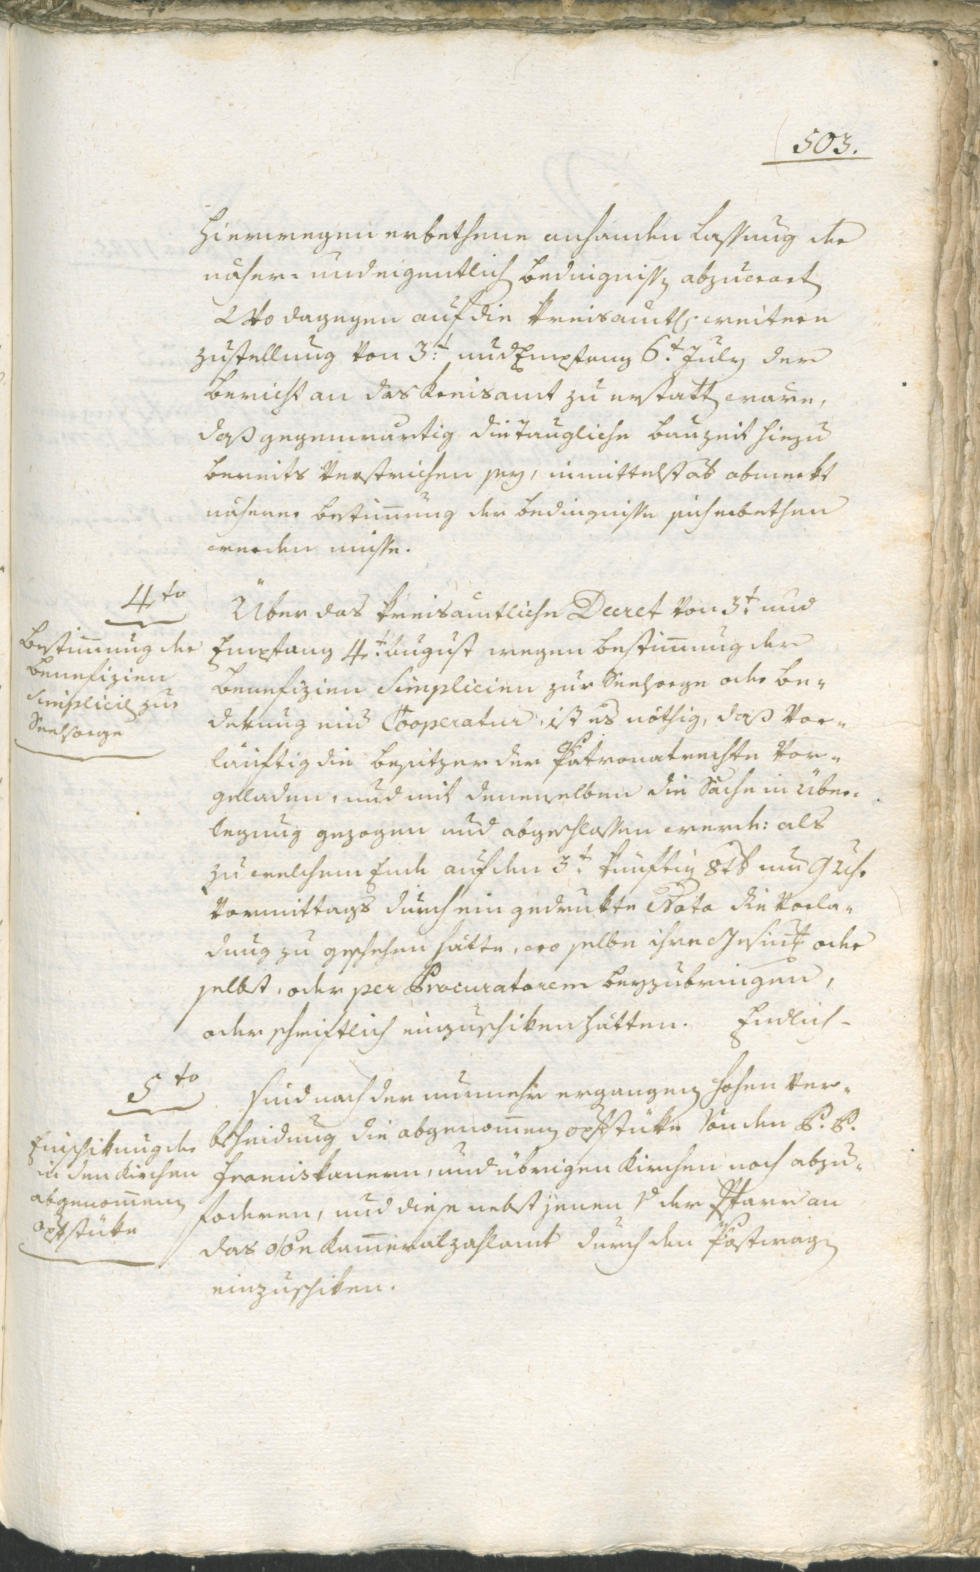 503.
hierwegen erbethene anhanden Lassung der
näher- und eigentlich Bedingnisse abzuwart
Wo dagegen auf die Kreisamtl. weitere
zustellung von 3t und Empfang 6t July der
Bericht an das Kreisamt zu erstatt wäre,
daß gegenwärtig die taugliche Bauzeit hiezu
bereits verstrichen sey, inmittelst ab
nähere Bestimmung der Bedingnisse sich erbethen
werden müsse.
4to
Bestimmung der
Benefizien
Simplicie zur
Seelsorge
Über das Kreisamtliche Decret von 3t und
Empfang 4t August wegen Bestimmung der
Benefizien Simplicien zur Seelsorge oder Be-
dekung eins Cooperatur, ist es nöthig, daß vor-
läuftig die Besitzer der Patronatrechte vor-
geladen, und mit denenselben die Sache in über-
legung gezogen und abgeschlossen werde: als
zu welchem Ende auf den 3t künftig 8tb um 9 Uhr
Vormittags durch ein gedrukte Nota die Vorla-
dung zu geschehen hätte, wo selbe ihre Gesinn oder
selbst, oder per Procuratorem beyzubringen,
oder schriftlich einzuschiken hätten. Endlich-
5to
Einschikung der
in den Kirchen
abgenommen
Opfstüke
sind nach der nunmehr ergangen hohen Ver-
bscheidung die abgenommen Opfstüke von den P. P.
Franciskanern, und übrigen Kirchen noch abzu-
foderen, und diese nebst jenen der Pfarr an
das Kammeralzahlamt durch den Postwag
einzuschiken.